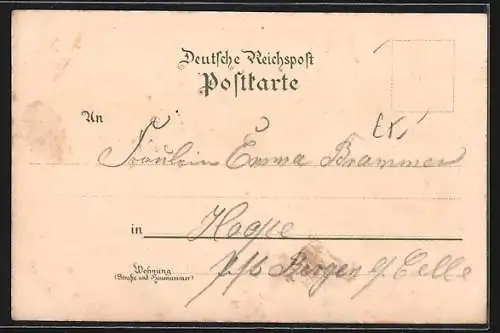 Deutsche Reichspost
Postkarte
An
Fräulein Emma Brammer
in
Bergen b/ Celle
Wohnung
(Straße und Hausnummer)